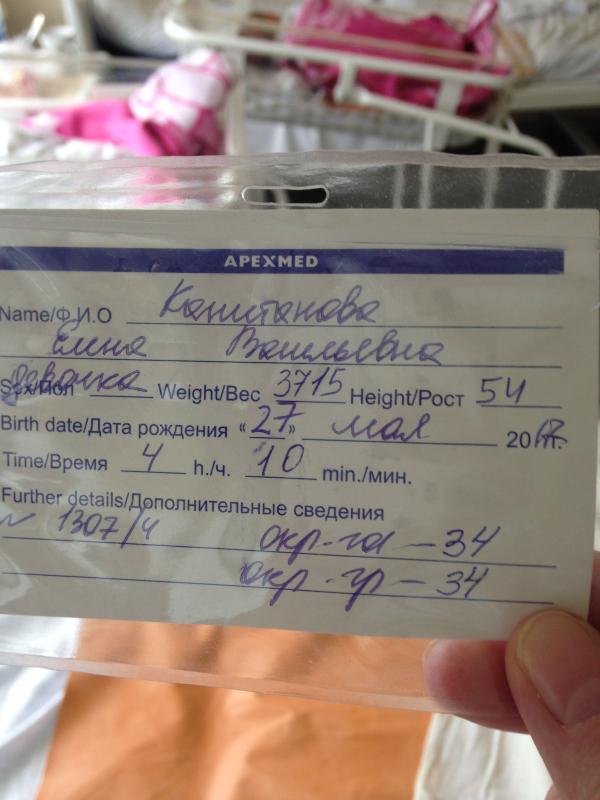 APEXMED
Name/Ф.И.О Капитанова
Елена Васильевна
Sex/Пол девочка Weight/Вес 3715 Height/Рост 54
Birth date/Дата рождения «27» мая 20 г.
Time/Время 4 h./ч. 10 min./мин.
Further details/Дополнительные сведения
№ 1307/4 окр-га – 34
окр-гр – 34